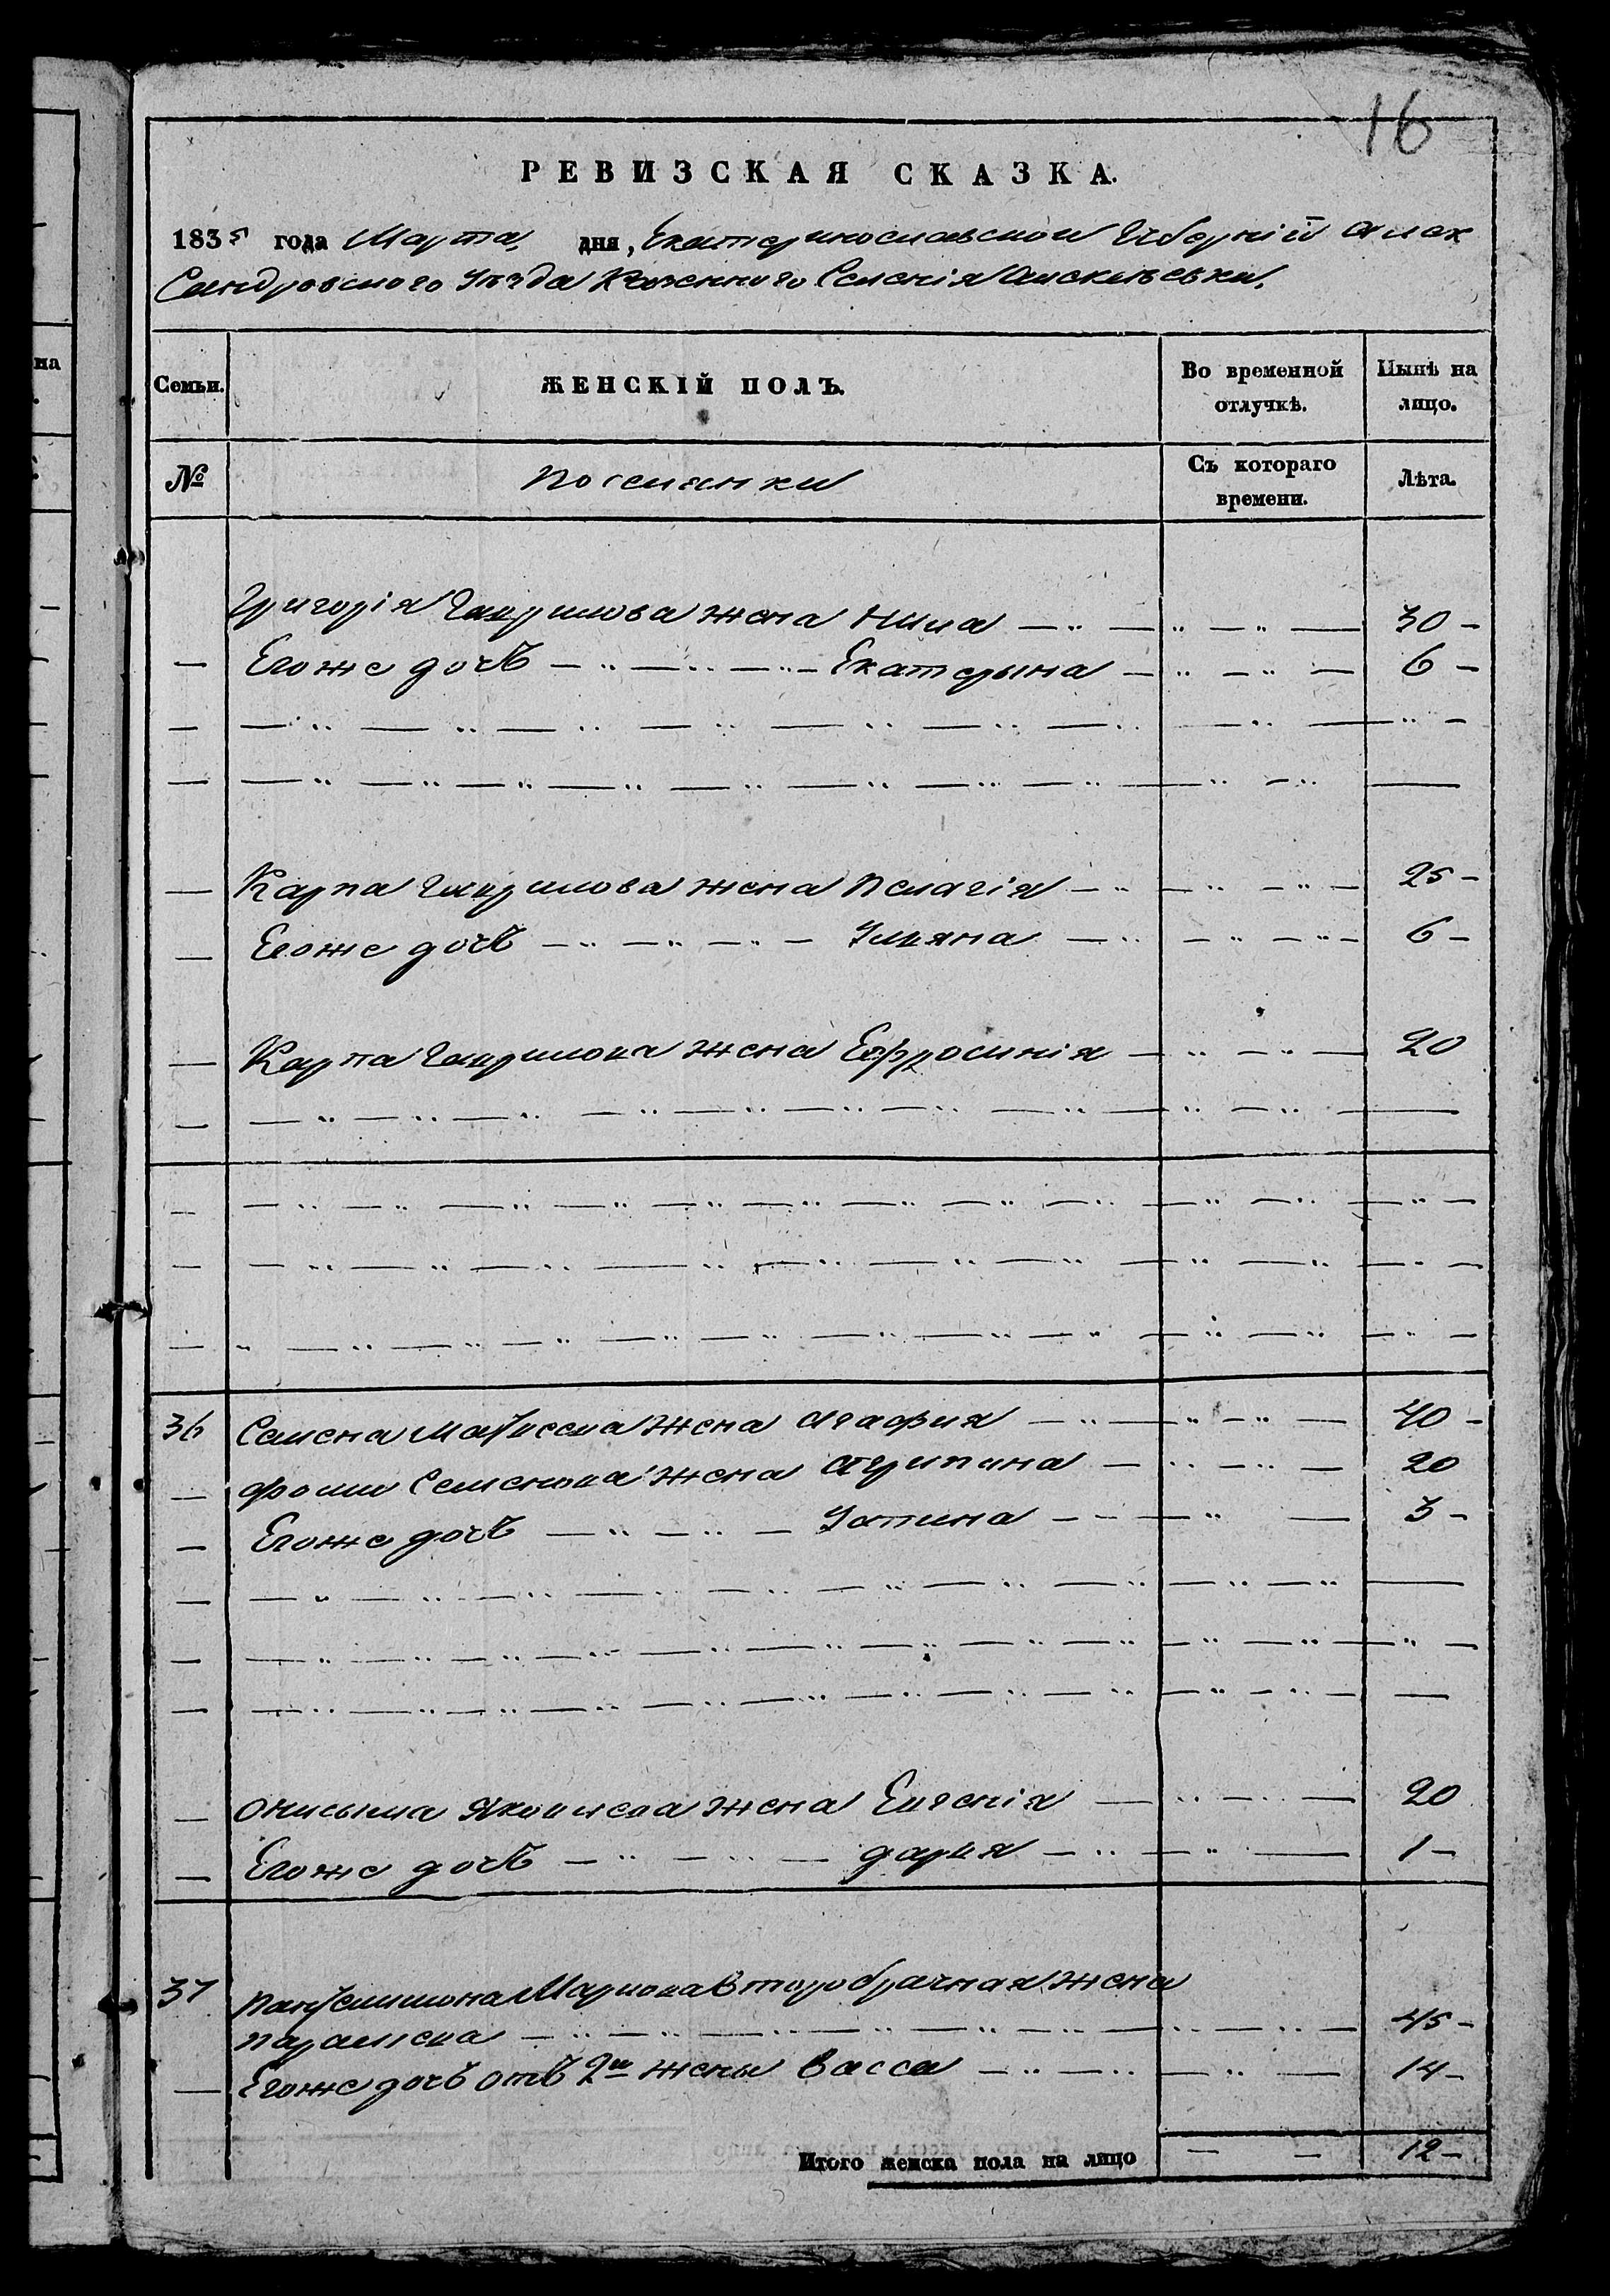 16
РЕВИЗСКАЯ СКАЗКА.
1835 года Марта, дня, Екатеринославской Губерніи Алек
Сандровского Уѣзда Казенного Селенія
Семьи. ЖЕНСКІЙ ПОЛЪ. Во временной отлучкѣ. Нынѣ на лицо.
№ Поселянки Съ котораго времени. Лѣта.
Григорія Гаврилова жена Нила 30
Егоже дочь Екатерына 6
Карпа Гаврилова жена Пелагія 25
Егоже дочь Улияна 6
Карпа Гаврилова жена Ефросинія 20
36 Семена Матвеева жена Агафия 40
Фомы Семенова жена Агрипина 20
Егоже дочь Устина 3
Онисыма Яковлева жена Евгенія 20
Егоже дочь Дария 1
37 Маркова второбрачная жена
Парасκева 45
Егоже дочь отъ 2й жены Васса 14
Итого женска пола на лицо 12